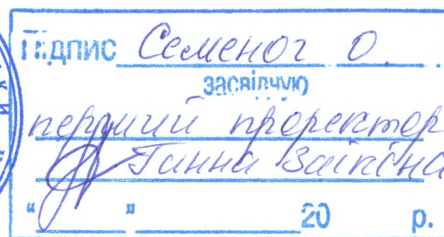 Підпис Семеног О.
засвідчую
перший проректор
Ганна Заікіна
“ ” 20 р.